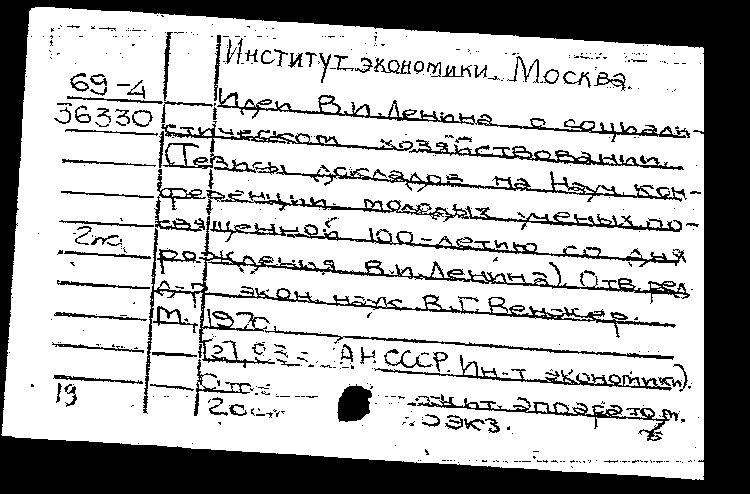 Институт экономики. Москва.
69-4
36330
Идеи В.И.Ленина о социали-
стическом хозяйствовании.
(Тезисы докладов на Науч. кон-
ференции молодых ученых, по-
священной 100-летию со дня
рождения В.И.Ленина). Отв. ред.
д-р экон. наук В.Г.Венжер.
М., 1970.
[2], 93 с. (АН СССР. Ин-т экономики).
19
множит. аппаратом.
экз.